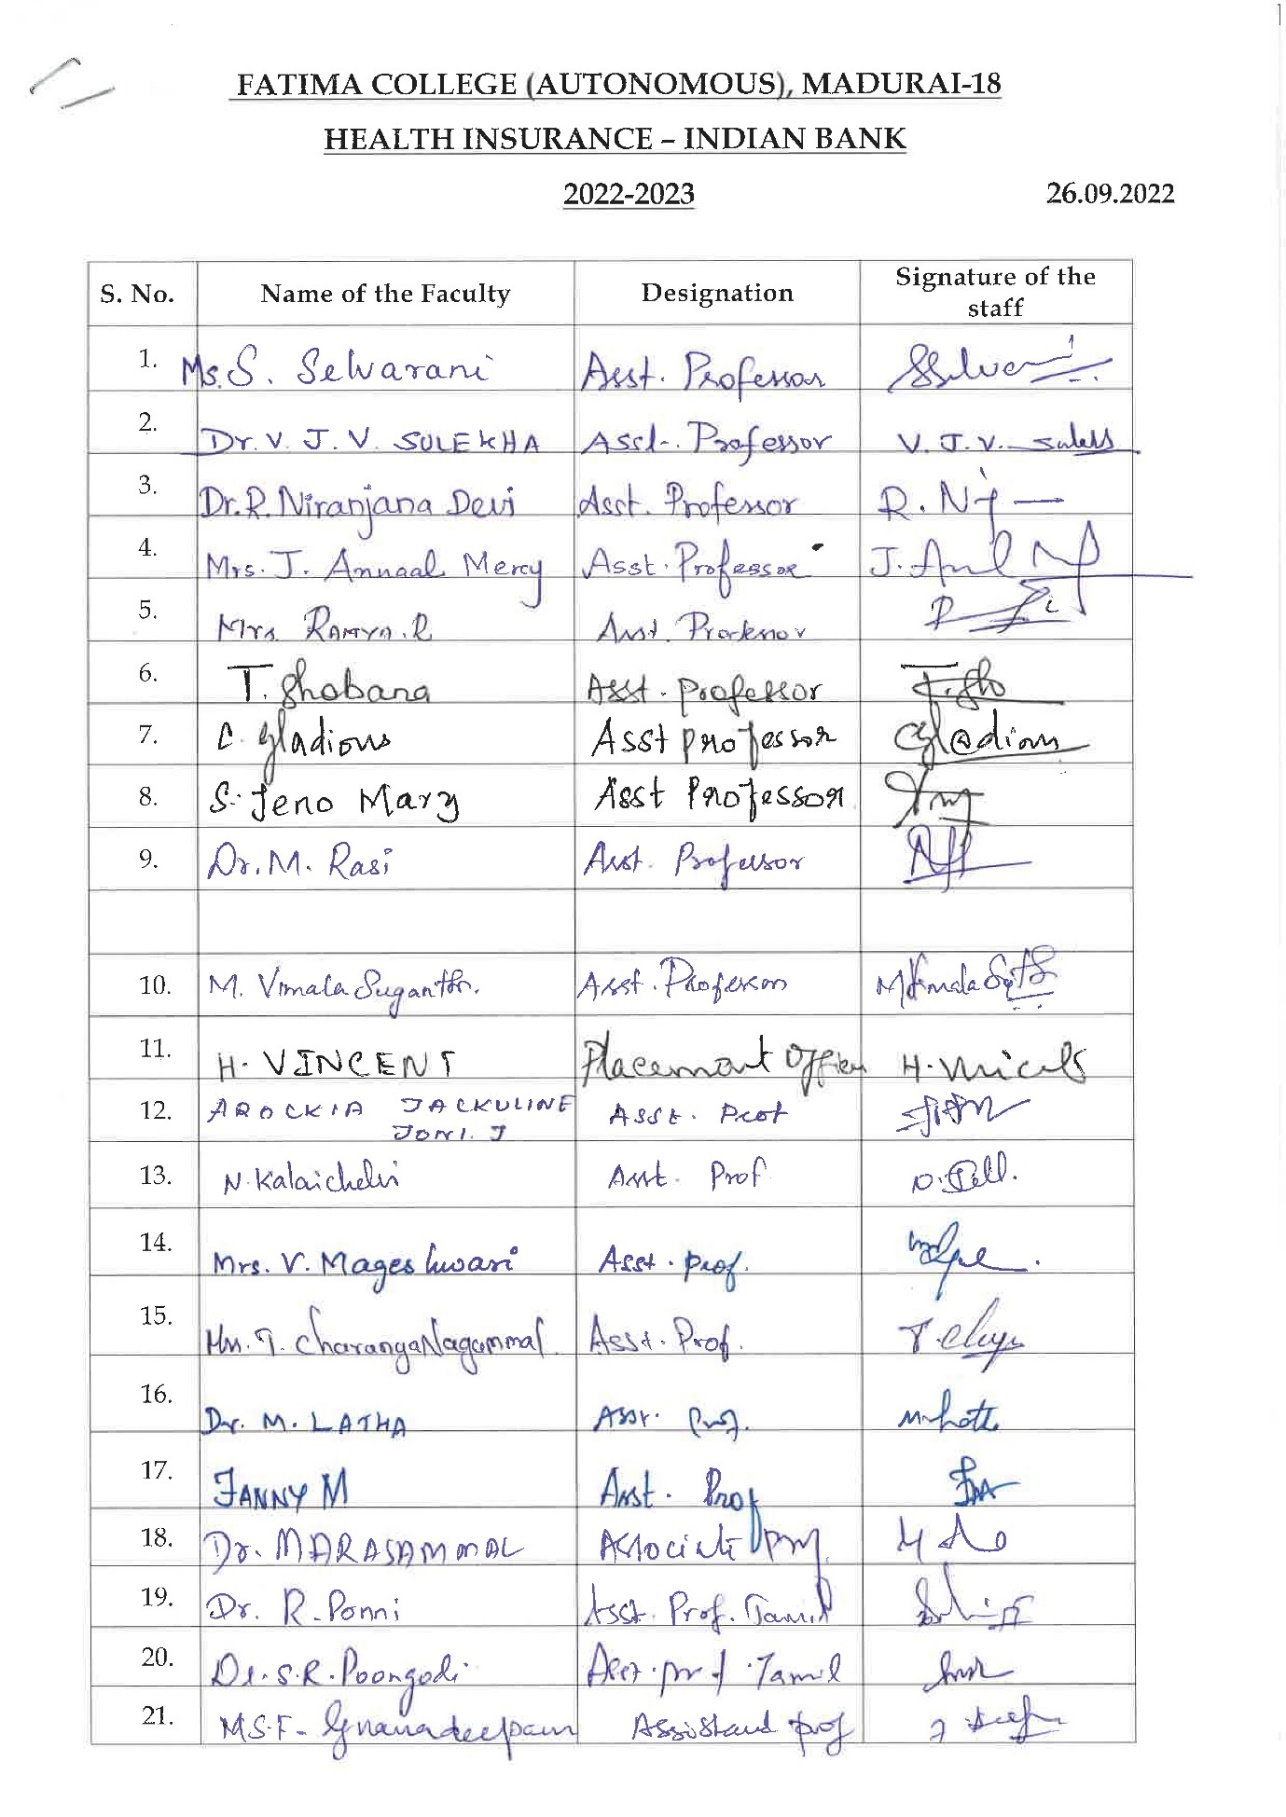 FATIMA COLLEGE (AUTONOMOUS), MADURAI-18
HEALTH INSURANCE – INDIAN BANK
2022-2023 26.09.2022
S. No. Name of the Faculty Designation Signature of the staff
1. Ms. S. Selvarani Asst. Professor
2. Dr. V. J. V. SULEKHA Asst. Professor V. J. V.
3. Dr. R. Niranjana Devi Asst. Professor R.
4. Mrs. J. Annaal Mercy Asst. Professor J.
5. Mrs. RAMYA. R Asst. Professor
6. T. Shobana Asst. Professor
7. C. Gladious Asst professor
8. S. Jeno Mary Asst Professor
9. Dr. M. Rasi Asst. Professor
10. M. Vimala Suganthi. Asst. Professor M Vimala
11. H. VINCENT Placement Officer H.
12. AROCKIA JACKULINE JONI. J Asst. Prof
13. N. Kalaichelvi Asst. Prof
14. Mrs. V. Mageshwari Asst. prof.
15. T. CharangaNagammal Asst. Prof.
16. Dr. M. LATHA Asst. Prof.
17. FANNY M Asst. Prof
18. Dr. MARASAMMAL Associate Prof
19. Dr. R. Ponni Asst. Prof. Tamil
20. Dr. S. R. Poongodi Asst. prof. Tamil
21. MS. F. Gnanadeepam Assistant prof